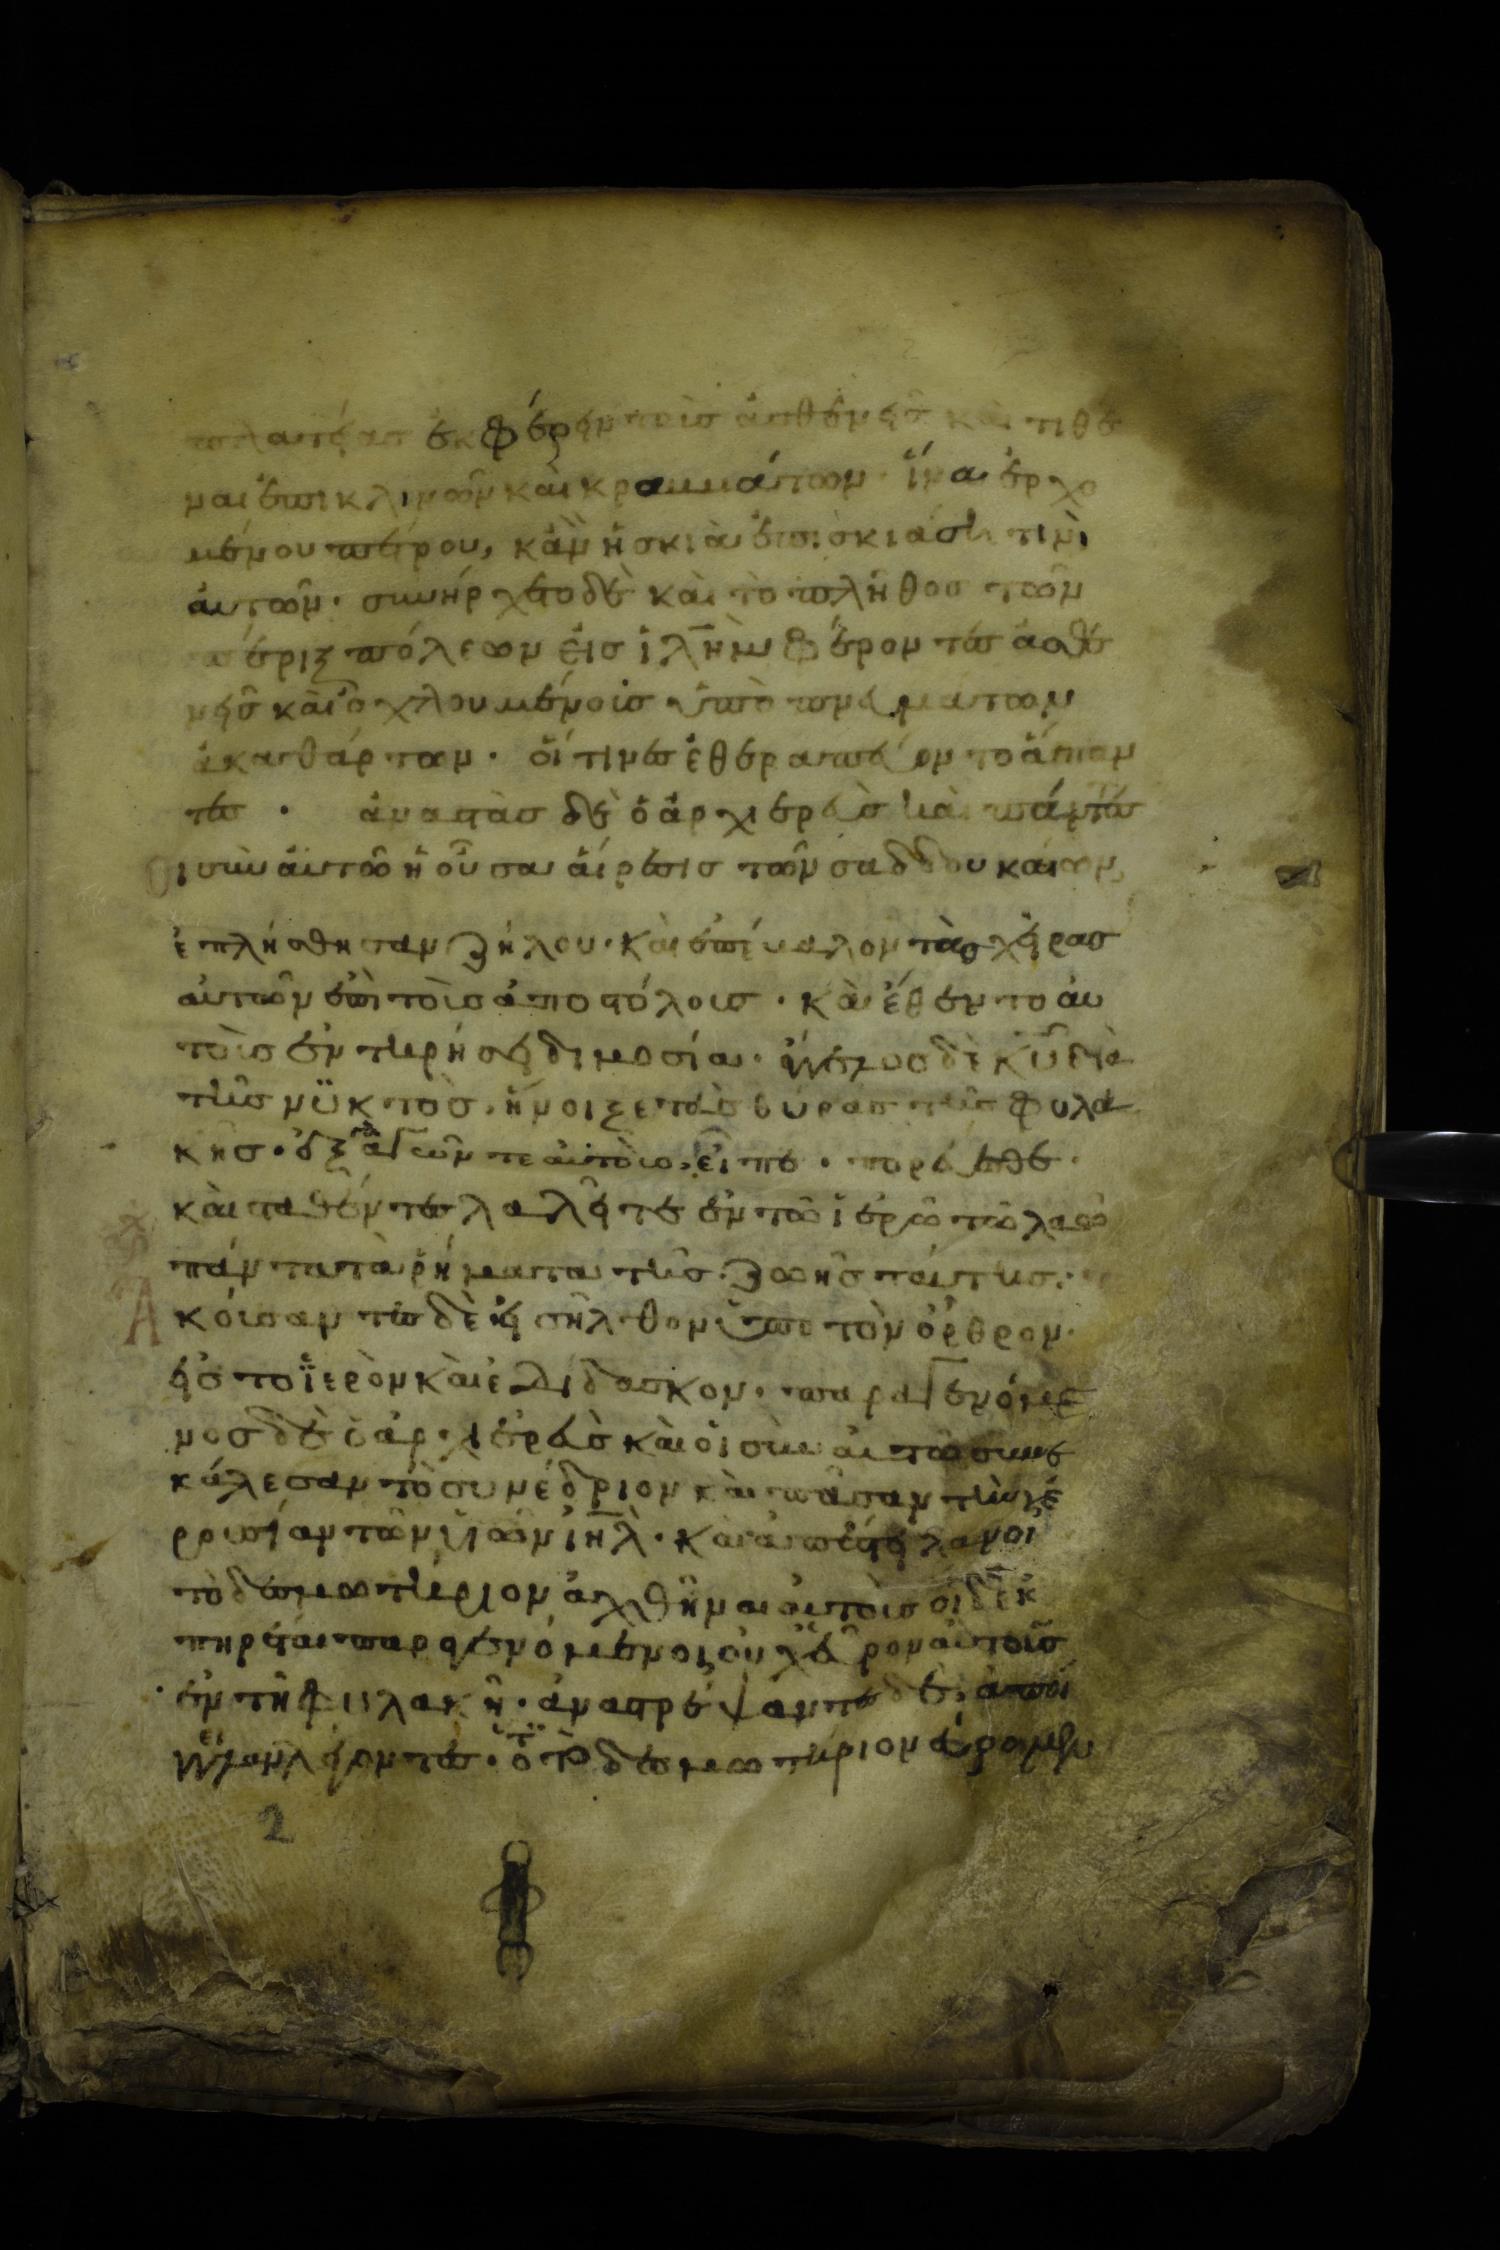 πλατείας ἐκφέρειν τοὺς ἀσθενεῖς καὶ τιθέ
ναι ἐπι κλινῶν καὶ κραμμάτων· ἵνα ἐρχο
μένου πέτρου, κἂν ἡ σκιὰ ἐπισκιάση τινὶ
αὐτῶν· συνήρχετο δὲ καὶ τὸ πλῆθος τῶν
πέριξ πόλεων εἰς ἱλῆμ φέροντες ἀσθε
νεῖς καὶ ὀχλουμένοις ὑπὸ πνευμάτων
ἀκαθάρτων· οἵτινες ἐθεραπεύοντο ἅπαν
τες · ἀναστὰς δὲ ὁ ἀρχιερεὺς καὶ πάντες
οἱ σὺν αὐτῶ ἡ οὖσα αἵρεσις τῶν σαδδουκαίων,
ἐπλήσθησαν ζήλου· καὶ ἐπέβαλον τὰς χεῖρας
αὐτῶν ἐπὶ τοὺς ἀποστόλους · καὶ ἔθεντο αὐ
τοὺς ἐν τηρήσει διμοσία· ἄγγελος δὲ κυ διὰ
τῆς νϋκτὸς, ἤνοιξε τὰς θύρας τῆς φυλα
κῆς· ἐξαγαγῶν τε αὐτοὺς, εἶπε · πορεύεσθε·
καὶ σταθέντες λαλεῖτε ἐν τῶ ἱερῶ τῶ λαῶ
πάντα τὰ ῥήματα τῆς ζωῆς ταύτης·
Ἀκούσαντες δὲ εἰσῆλθον ὑπο τὸν ὄρθρον·
εἰς το ἱερὸν καὶ ἐδίδασκον· παραγενόμε
νος δὲ ὁ ἀρχιερεὺς καὶ οἱ σὺν αὐτῶ συνε
κάλεσαν τὸ συνέδριον καὶ πᾶσαν τὴν γε
ρουσίαν τῶν υἱῶν ἰηλ· καὶ ἀπέστειλαν εἰ
τὸ δεσμωτήριον ἀχθῆναι αὐτοὺς οἱ δὲ ὑ
πηρέται παραγενόμενοι οὐχ εὗρον αὐτοὺς
ἐν τῆ φυλακῆ· ἀναστρέψαντες δὲ, ἀπήγ
γειλαν λέγοντες· ὅτι τὸ δεσμωτήριον εὕρομεν
2